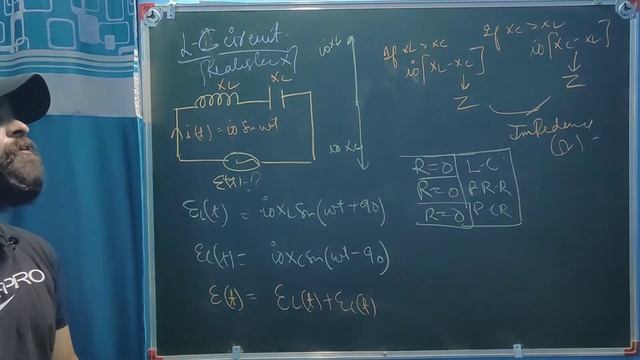 L-C circuit
XL XC
i(t) = i0 sin wt
E(t) = ?
i0XL
i0XC
If XL > XC
i0[XL - XC]
Z
If XC > XL
i0[XC - XL]
Z
Impedence
(Ω)
R=0 L-C
R=0
R=0
EL(t) = i0XL sin(wt+90)
EC(t) = i0XC sin(wt-90)
E(t) = EL(t)+EC(t)
PRO